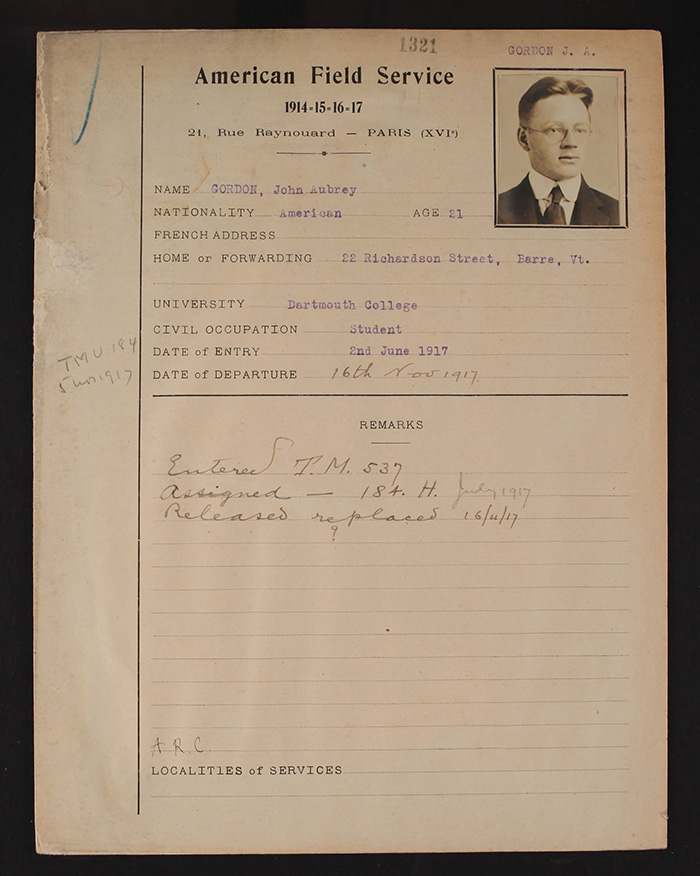 1321
GORDON J. A.
American Field Service
1914-15-16-17
21, Rue Raynouard — PARIS (XVIᵉ)
NAME GORDON, John Aubrey
NATIONALITY American AGE 21
FRENCH ADDRESS
HOME or FORWARDING 22 Richardson Street, Barre, Vt.
UNIVERSITY Dartmouth College
CIVIL OCCUPATION Student
DATE of ENTRY 2nd June 1917
TMU 184
DATE of DEPARTURE 16th Nov 1917
5 Nov 1917
REMARKS
Entered T.M. 537
Assigned — 184. H. July 1917
Released replaced 16/11/17
?
A.R.C.
LOCALITIES of SERVICES